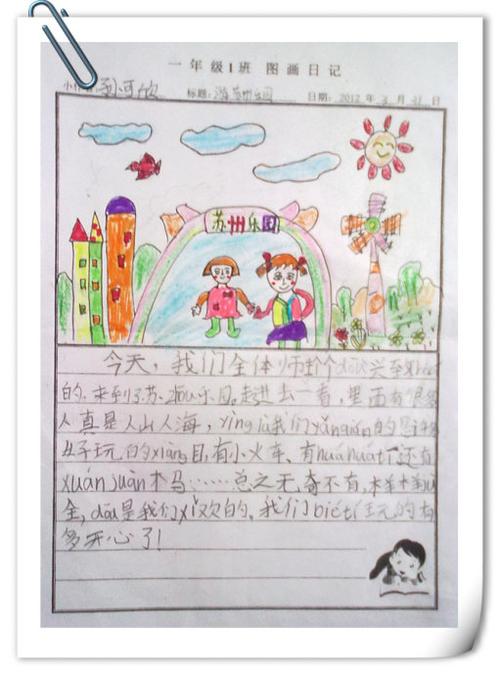 一年级1班 图画日记
小作者 刘可欣 标题:游苏州乐园 日期:2012年3月31日
苏州乐园
今天,我们全体师生个个dōu兴
的,来到了苏zhōu乐园,走进去一看,里面有很多
人真是人山人海,yìng rù我们yǎn的是
好玩的xiàng目,有小火车、有huá huá tī还有
xuán juǎn木马……总之无奇不有,
全,dōu是我们xǐ欢的,我们bié tí玩的有
多开心了!